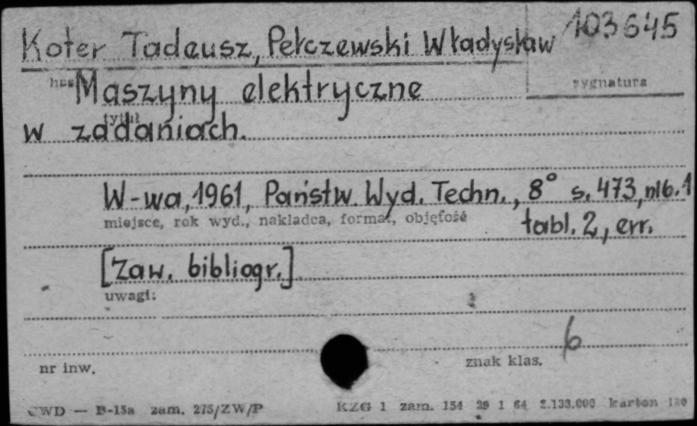 103645
Koter Tadeusz, Pełczewski Władysław
sygnatura
Maszyny elektryczne
tytuł
w zadaniach.
W-wa, 1961, Państw. Wyd. Techn., 8° s. 473, nlb. 1
miejsce, rok wyd., nakładca, format, objętość
tabl. 2, err.
[Zaw. bibliogr.]
uwagi:
6
nr inw.
znak klas.
CWD — B-15a zam. 275/ZW/P KZG 1 zam. 154 29 1 64 2.133.000 karton